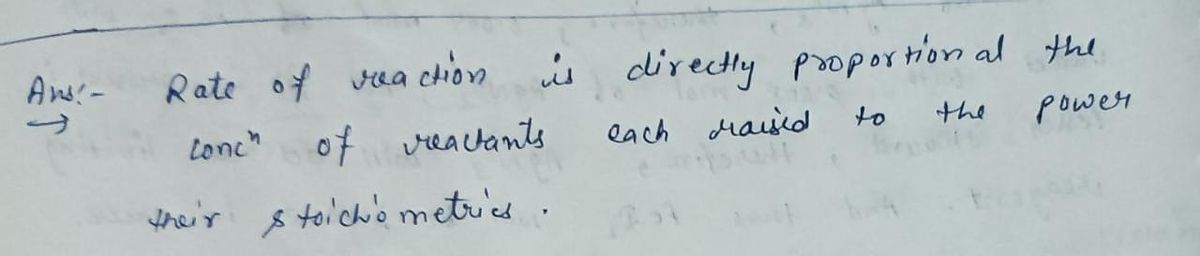 Ans:- Rate of reaction is directly proportional the
→ concⁿ of reactants each raised to the power
their stoichiometries.